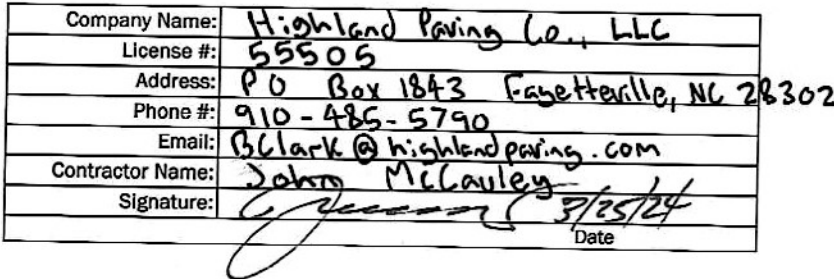 Company Name: Highland Paving Co., LLC
License #: 55505
Address: P O Box 1843 Fayetteville, NC 28302
Phone #: 910-485-5790
Email: BClark@highlandpaving.com
Contractor Name: John McCauley
Signature: 3/25/24
Date